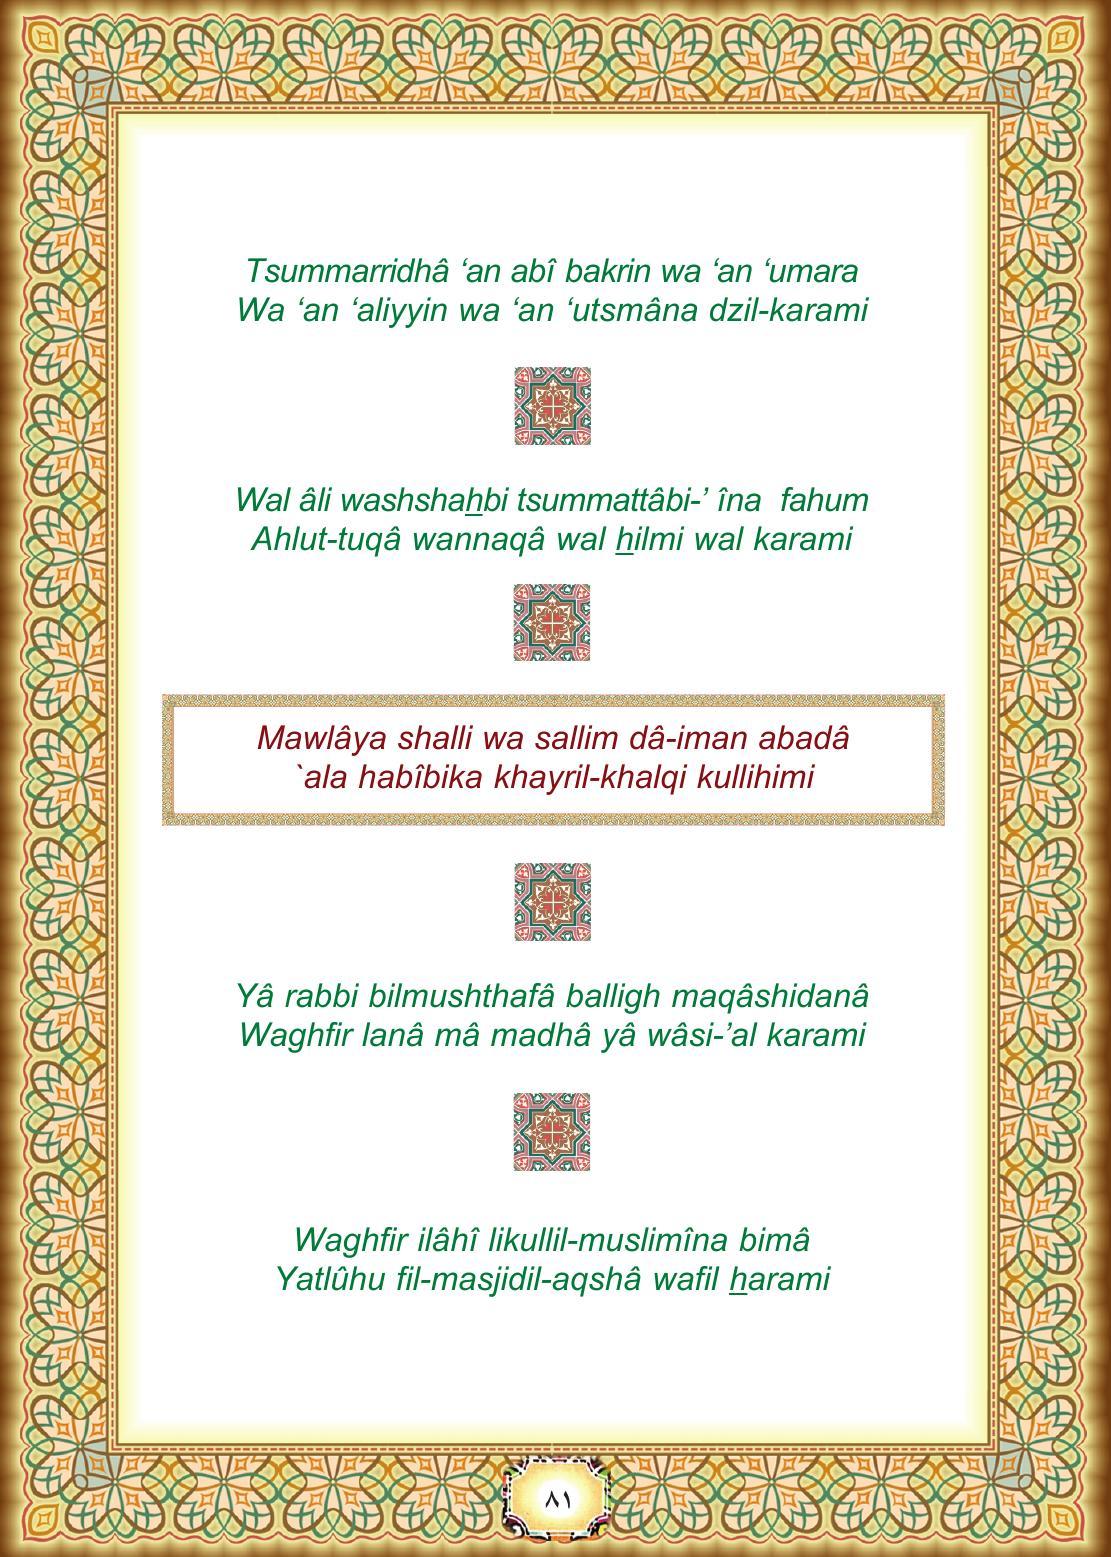 Tsummarridhâ ‘an abî bakrin wa ‘an ‘umara
Wa ‘an ‘aliyyin wa ‘an ‘utsmâna dzil-karami
Wal âli washshahbi tsummattâbi-’ îna  fahum
Ahlut-tuqâ wannaqâ wal hilmi wal karami
Mawlâya shalli wa sallim dâ-iman abadâ
`ala habîbika khayril-khalqi kullihimi
Yâ rabbi bilmushthafâ balligh maqâshidanâ
Waghfir lanâ mâ madhâ yâ wâsi-’al karami
Waghfir ilâhî likullil-muslimîna bimâ
Yatlûhu fil-masjidil-aqshâ wafil harami
٨١